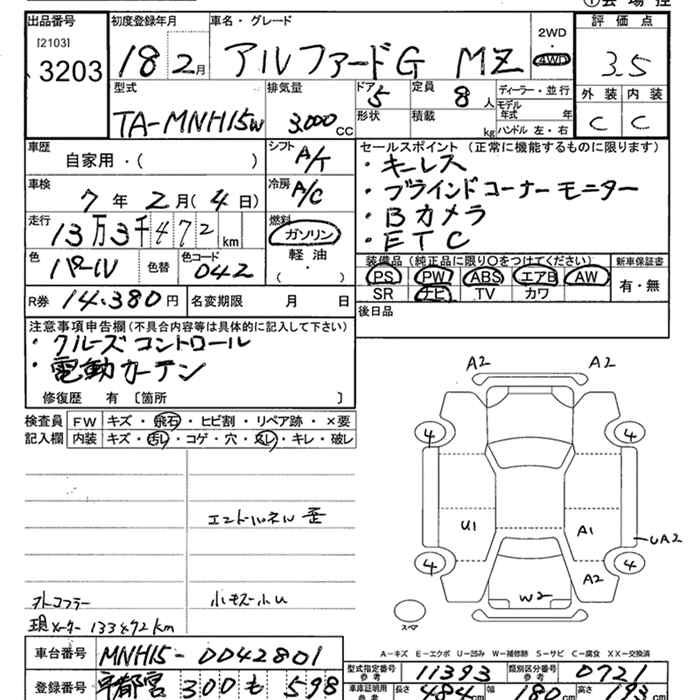 出品番号 初度登録年月 車名・グレード 評価点
[2103]
3203 18 2月 アルファードG MZ 2WD 4WD 3.5
型式 排気量 ドア 定員 ディーラー・並行 外装 内装
TA-MNH15W 3.000CC 5 8人 モデル年式 年 C C
形状 積載 kg ハンドル 左・右
車歴 シフト セールスポイント (正常に機能するものに限ります)
自家用・( ) A/T ・キーレス
車検 冷房 ・ブラインドコーナーモニター
7年2月(4日) A/C ・Bカメラ
走行 燃料 ・ETC
13万3千472km ガソリン
色 色替 色コード 軽油 装備品(純正品に限り○をつけてください) 新車保証書
パール 042 ( ) PS PW ABS エアB AW 有・無
R券 14.380円 名変期限 月 日 SR ナビ TV カワ
後日品
注意事項申告欄(不具合内容等は具体的に記入して下さい)
・クルーズコントロール
・電動カーテン
修復歴 有〔箇所 〕
検査員 FW キズ・飛石・ヒビ割・リペア跡・×要
記入欄 内装 キズ・汚レ・コゲ・穴・スレ・キレ・破レ
A2 A2
4 4
エンドパネル歪
U1 A1 UA2
4 4
A2
W2
現メーター 133472km
スペア
A-キズ E-エクボ U-凹み W-補修跡 S-サビ C-腐食 XX-交換済
車台番号 MNH15-0042801 型式指定番号 参考 11393 類別区分番号 参考 0721
登録番号 宇都宮 300 も 598 車庫証明用 参考 長さ 484cm 幅 180cm 高さ 193cm